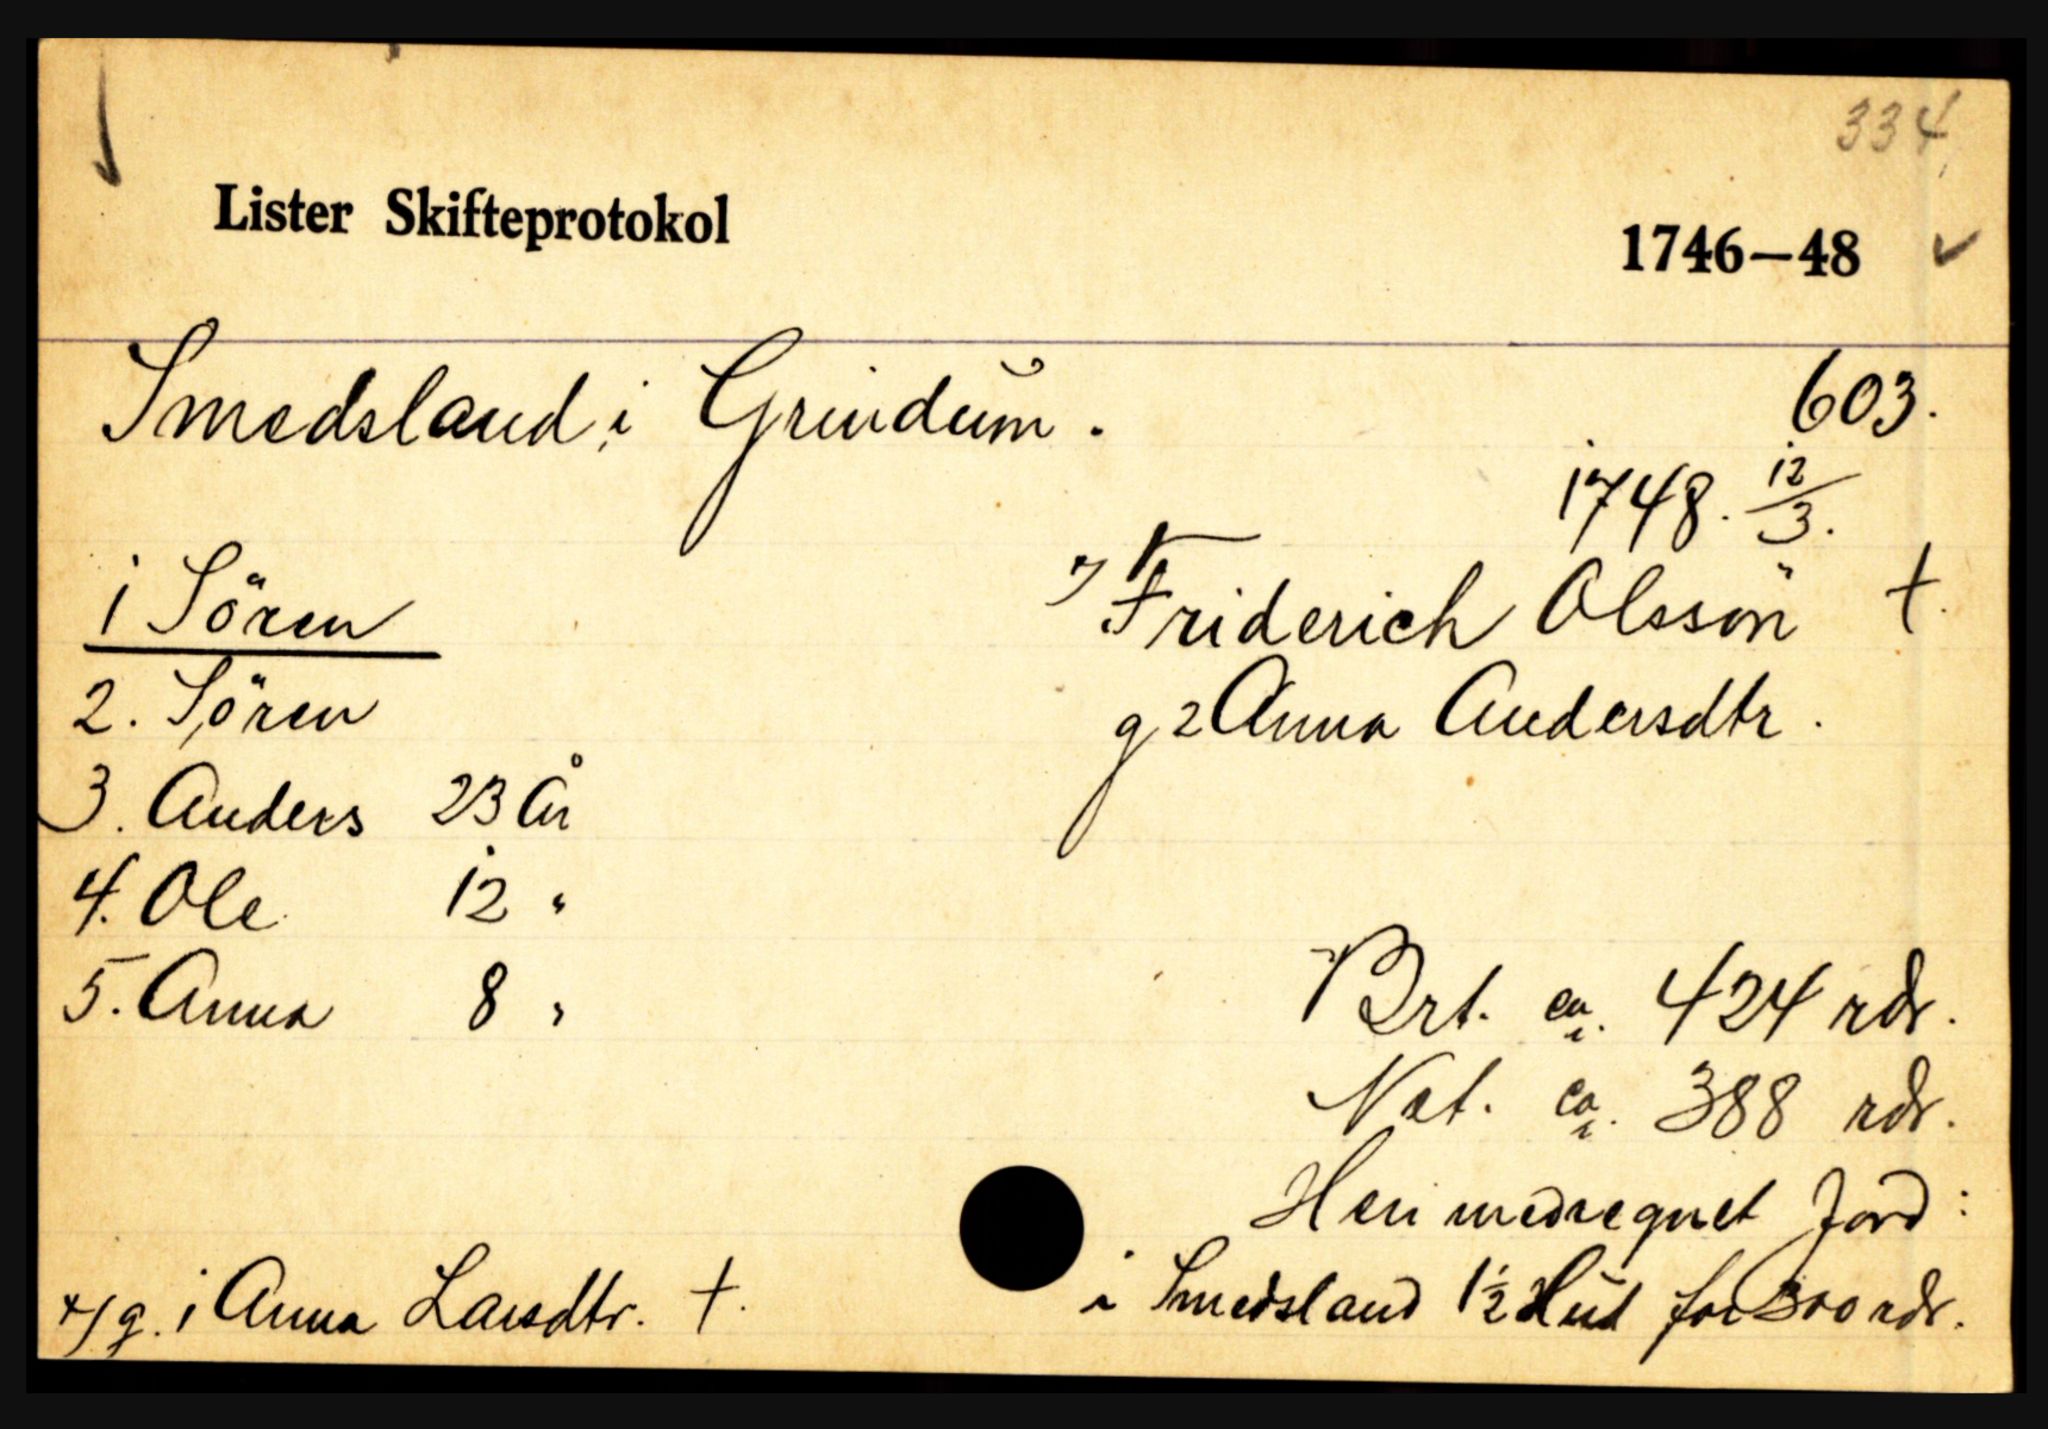 334,
Lister Skifteprotokol 1746—48
Smedsland i Grindum.
603.
1748. 12/3.
1 Sören
*/ Friderich Olssön †.
2. Sören
g 2 Anna Andersdtr.
3. Anders 23 År
4. Ole 12 "
5. Anna 8 "
Brt. ca. 424 rdr.
Net. ca. 388 rdr.
Heri medregnet Jord:
i Smedsland 1½ Hud for 300 rdr.
*/ g. 1 Anna Larsdtr. †.